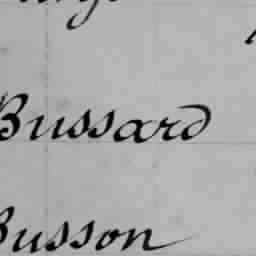 Bussard
Busson